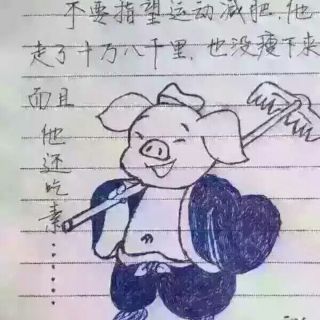 不要指望运动减肥.他
走了十万八千里.也没瘦下来
而且
他
还
吃
素……